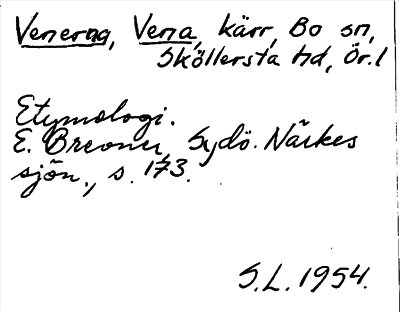 Venerna, Vena, kärr, Bo sn,
Sköllersta hd, Ör. l
Etymologi.
E. Brevner, Sydö. Närkes
sjön., s. 173.
S.L. 1954.